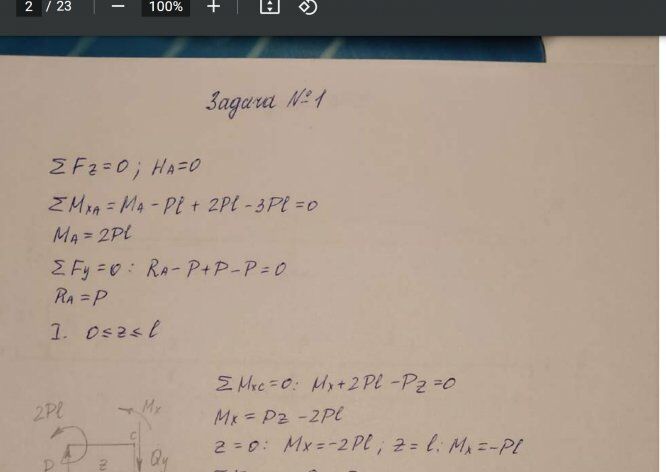 2 / 23 — 100% +
Задача №1
ΣFz=0; HA=0
ΣMxA=MA-Pl+2Pl-3Pl=0
MA=2Pl
ΣFy=0: RA-P+P-P=0
RA=P
I. 0≤z≤l
ΣMxc=0: Mx+2Pl-Pz=0
Mx=Pz-2Pl
z=0: Mx=-2Pl; z=l: Mx=-Pl
2Pl Mx
C
z Qy